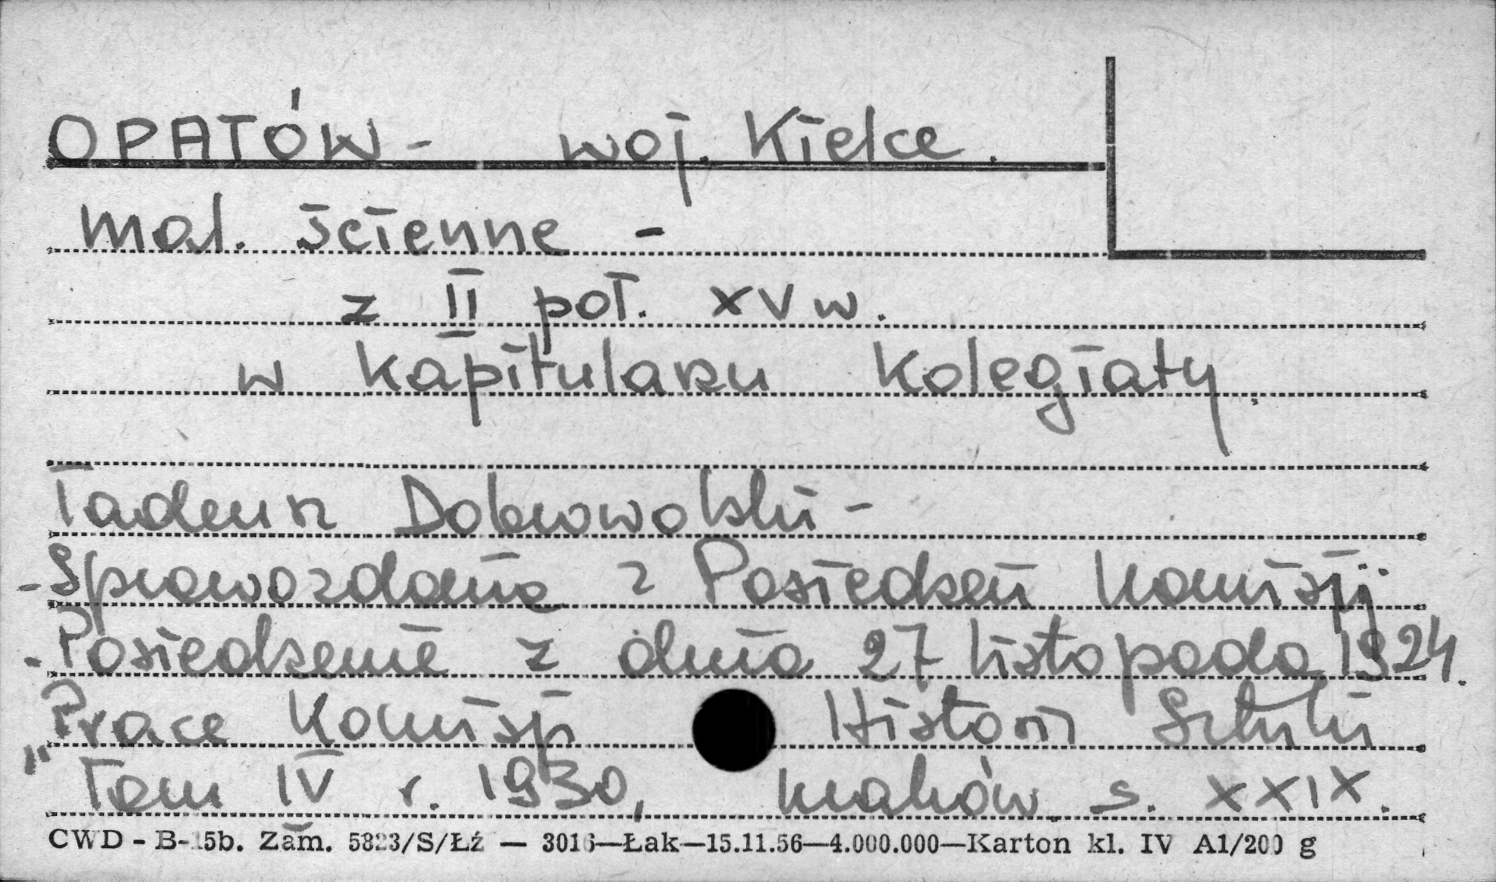 OPATÓW - woj. Kielce.
mal. ścienne -
z II poł. XV w.
w Kapitularzu Kolegiaty.
Tadeusz Dobrowolski -
- Sprawozdania z Posiedzeń Komisji.
- Posiedzenie z dnia 27 listopada 1924.
"Prace Komisji Historii Sztuki
Tom IV r. 1930, Kraków. s. XXIX.
CWD - B-15b. Zam. 5823/S/Łź — 3016—Łak—15.11.56—4.000.000—Karton kl. IV A1/200 g